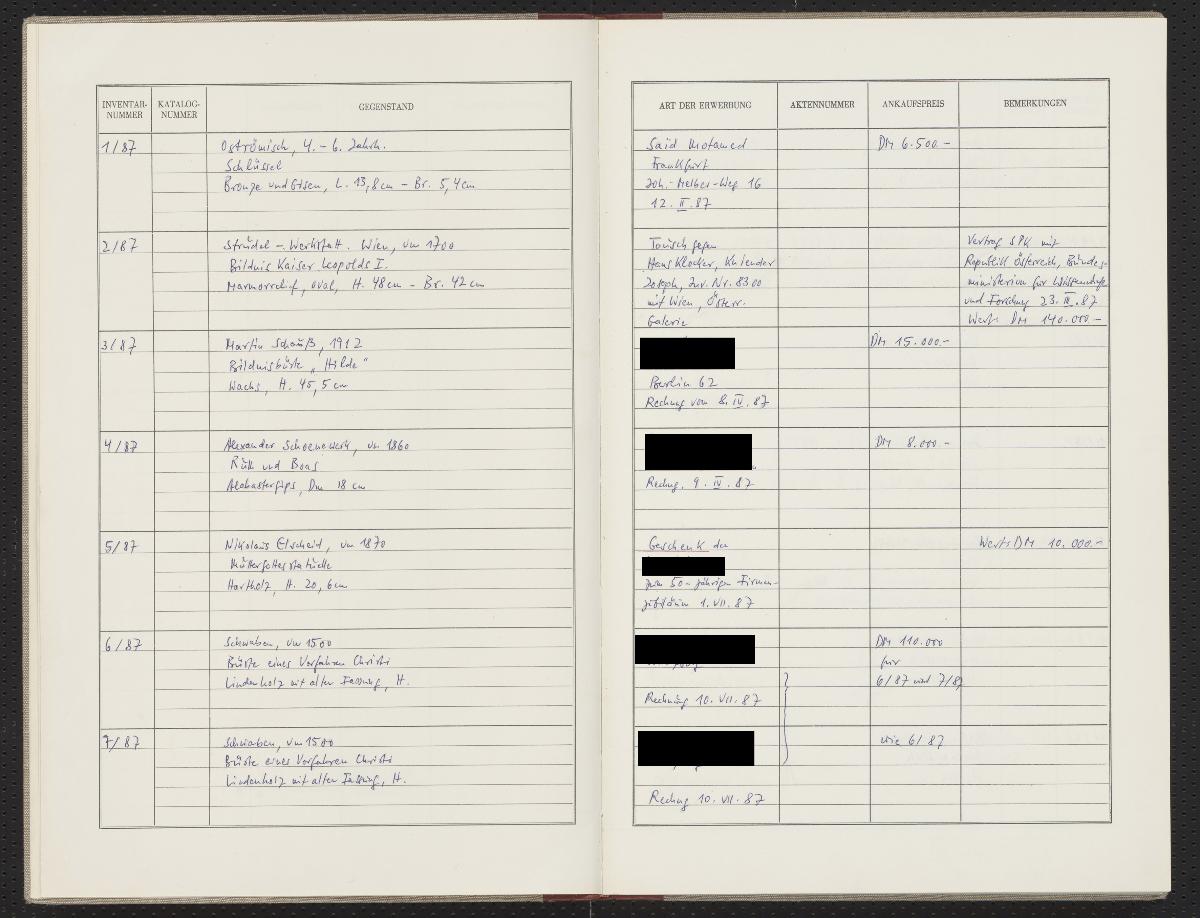 INVENTAR-
NUMMER
KATALOG-
NUMMER
GEGENSTAND
1/87
Oströmisch, 4. - 6. Jahrh.
Schlüssel
Bronze und Eisen, L. 13,8 cm - Br. 5,4 cm
2/87
Strudel - Werkstatt. Wien, um 1700
Bildnis Kaiser Leopolds I.
Marmorrelief, oval, H. 48 cm - Br. 42 cm
3/87
Martin Schauß, 1912
Bildnisbüste „Hilde"
Wachs, H. 45,5 cm
4/87
Alexander Schoenewerk, um 1860
Ruth und Boas
Alabastergips, Dm 18 cm
5/87
Nikolaus Elscheid, um 1870
Muttergottesstatuette
Hartholz, H. 20,6 cm
6/87
Schwaben, um 1500
Büste eines Vorfahren Christi
Lindenholz mit alter Fassung, H.
7/87
Schwaben, um 1500
Büste eines Vorfahren Christi
Lindenholz mit alter Fassung, H.
ART DER ERWERBUNG
AKTENNUMMER
ANKAUFSPREIS
BEMERKUNGEN
Said Motamed
Frankfurt
Joh.-Melber-Weg 16
12. II. 87
DM 6.500.-
Tausch gegen
Hans Klocker, Kalender
Joseph, Inv. Nr. 8300
mit Wien, Österr.
Galerie
Vertrag SPK mit
Republik Österreich, Bundes-
ministerium für Wissenschaft
und Forschung 23. II. 87
Wert: DM 140.000.-
Berlin 62
Rechnung vom 8. IV. 87
DM 15.000.-
Rechng. 9. IV. 87
DM 8.000.-
Geschenk der
zum 50-jährigen Firmen-
jubiläum 1. VII. 87
Wert: DM 10.000.-
Rechnung 10. VII. 87
DM 110.000
für
6/87 und 7/87
Rechng 10. VII. 87
wie 6/87